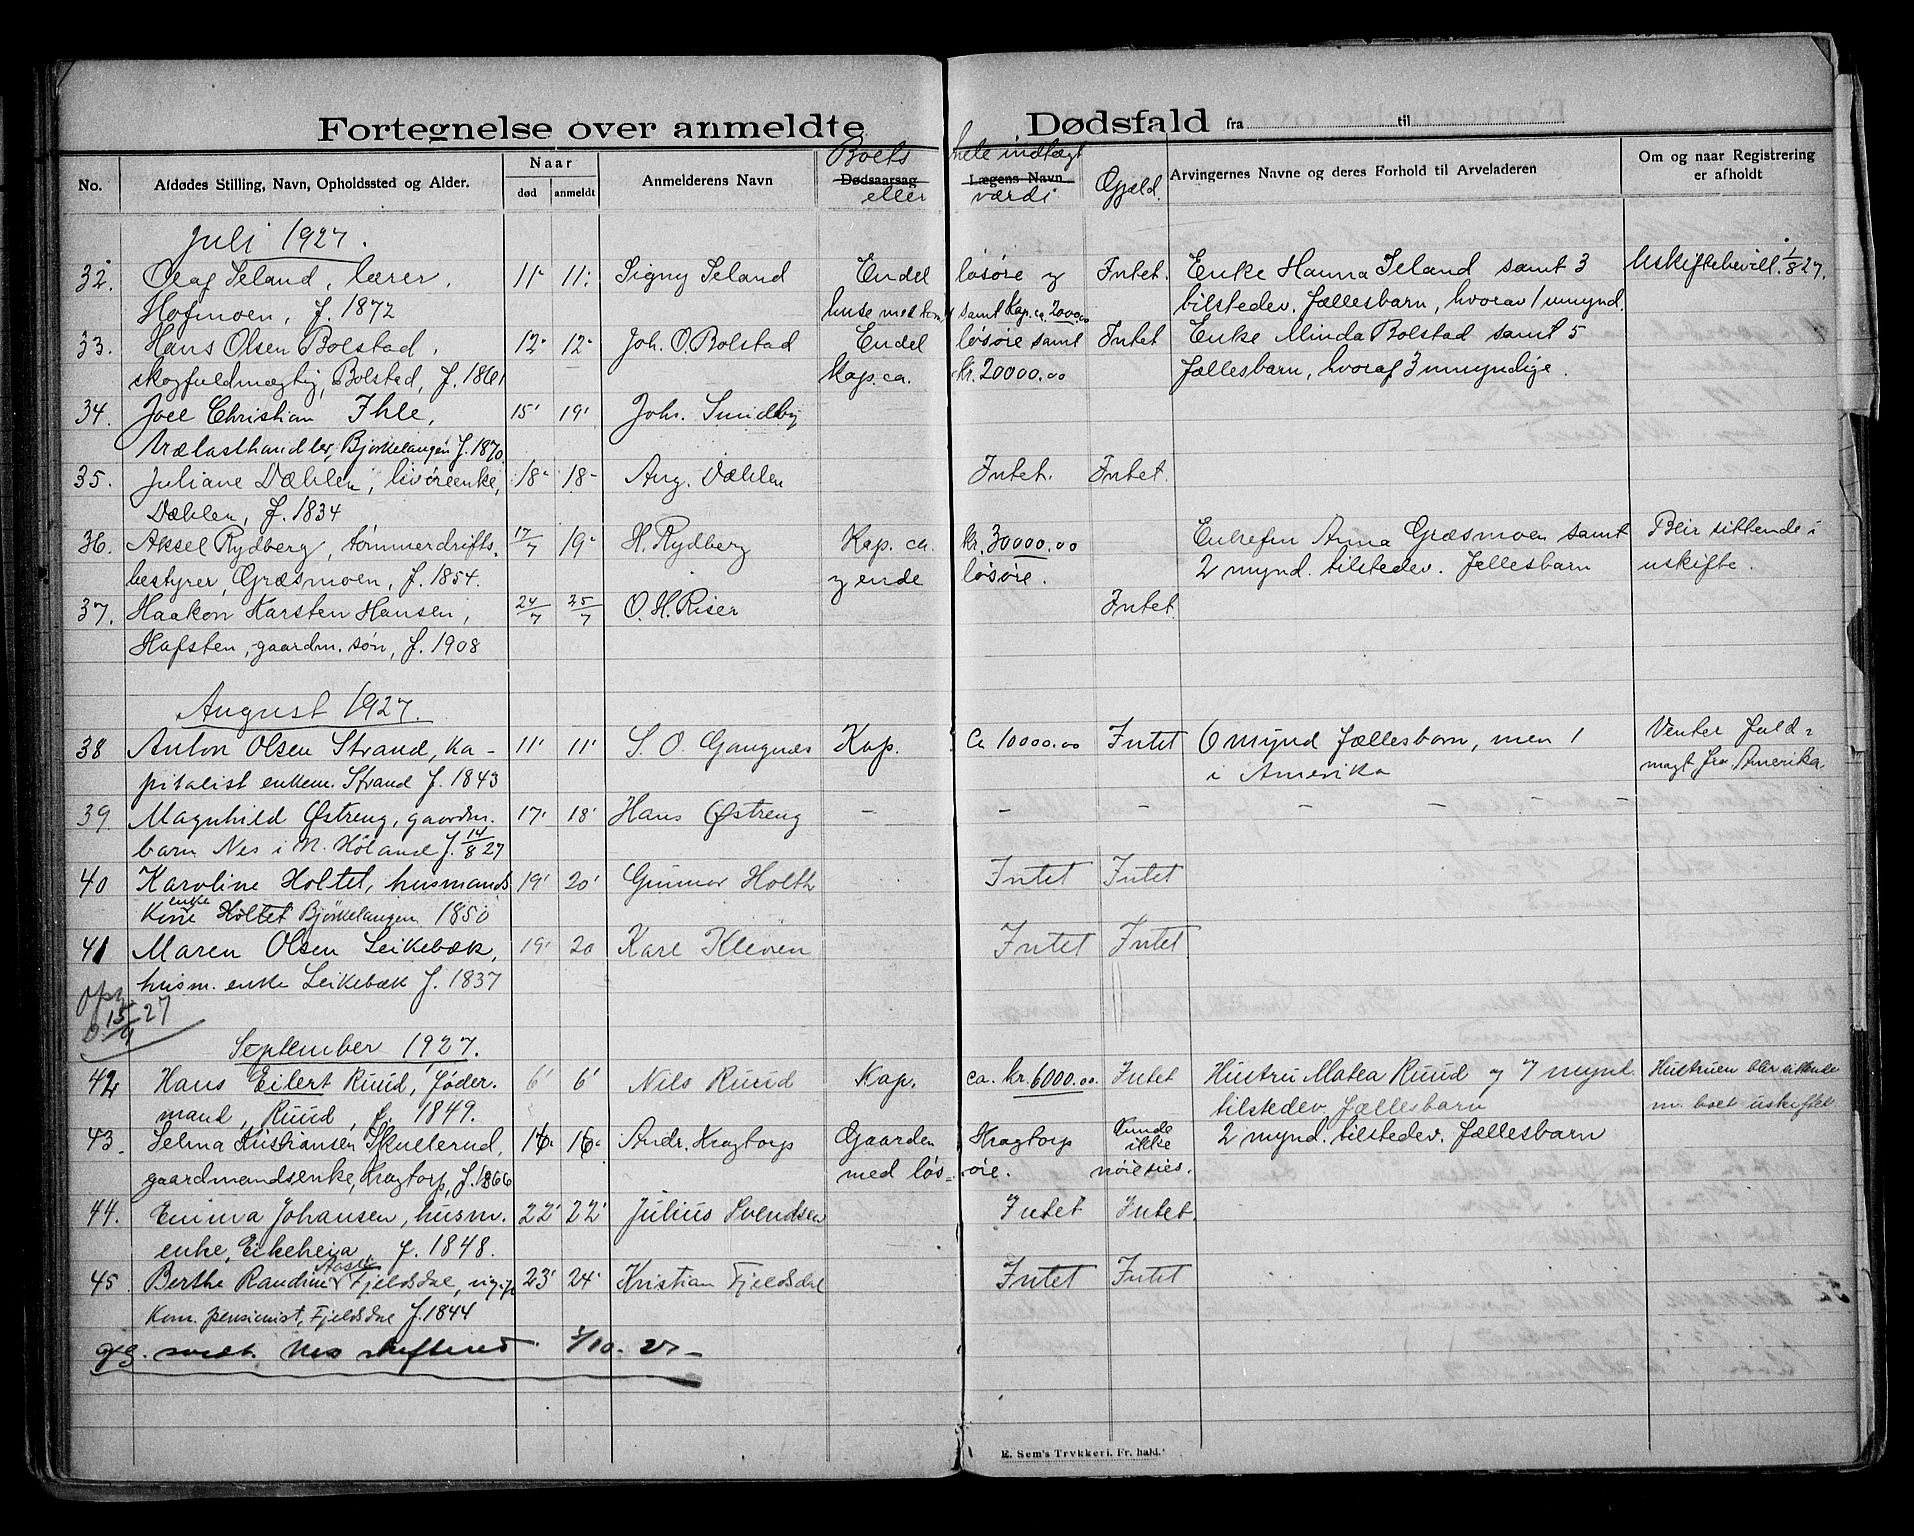 Fortegnelse over anmeldte Dødsfald fra til
No. Afdødes Stilling, Navn, Opholdssted og Alder. Naar død anmeldt Anmelderens Navn Dødsaarsag Lægens Navn Arvingernes Navne og deres Forhold til Arveladeren Om og naar Registrering er afholdt
Boets hele indtægt
eller værdi Gjæld.
Juli 1927.
32. Olaf Seland, lærer, 11- 11- Signy Seland Endel løsøre og Intet. Enke Hanna Seland samt 3 Uskiftebevill. 1/8 27.
Hofmoen, f. 1872 samt Kap. ca. 2000.00 tilstedev. fællesbarn, hvorav 1 umynd.
33. Hans Olsen Bolstad, 12- 12- Joh. O. Bolstad Endel løsøre samt Intet Enke Minda Bolstad samt 5
skogfuldmægtig, Bolstad, f. 1861 kap. ca. kr. 20000.00 fællesbarn, hvoraf 3 umyndige.
34. Joel Christian Ihle, 15' 19' Johs. Smidby
trælasthandler, Bjørkelangen f. 1870.
35. Juliane Dæhlen, livøreenke, 18- 18- Aug. Dæhlen Intet. Intet.
Dæhlen, f. 1834
36. Aksel Rydberg, tømmerdrifts- 17/7 19- H. Rydberg Kap. ca. kr. 30000.00 Anna Græsmoen samt Blir sittende i
bestyrer, Græsmoen, f. 1854. løsøre. 2 mynd. tilstedev. fellesbarn uskifte.
37. Haakon Karsten Hansen, 24/7 25/7 O. H. Riser Intet.
Hafsten, gaardm. søn, f. 1908
August 1927.
38 Anton Olsen Strand, ka- 11' 11' S. O. Gangnæs Kap. ca 10000.00 Intet 6 mynd fællesbarn, men 1 Venter fuld-
pitalist enkem. Strand f. 1843 i Amerika magt fra Amerika.
39. Magnhild Østreng, gaardm. 17' 18' Hans Østreng - - - - - - -
barn Nes i N. Høland f. 14/8 27
40 Karoline Holtet, husmands 19' 20' Gunnar Holth Intet Intet
enke
Kone Holtet Bjørkelangen 1850
41 Maren Olsen Leikebæk, 19' 20 Karl Kleven Intet Intet
husm. enke Leikebæk f. 1837
15/9 27
September 1927.
42 Hans Eilert Ruud, føder- 6' 6' Nils Ruud Kap. ca. kr. 6000.00. Intet Hustru Matea Ruud og 7 mynd. Hustruen blir sittende
mand, Ruud, f. 1849. tilstedev. fællesbarn m. boet uskiftet
43. Selma Kristiansen Skullerud, 16- 16- Andr. Kragtorp Gaarden Kragtorp Kunde ikke 2 mynd. tilstedev. fællesbarn
gaardmandsenke, Kragtorp, f. 1866 med løs- øre. nøie sies.
44. Emma Johansen, husm. 22' 22' Julius Svendsen Intet Intet.
enke, Eikeheia, f. 1848.
45. Berthe Randine Fjeldsdal, ugift 23' 24' Kristian Fjeldsdal Intet Intet
Kom. pensionist, Fjeldsdal f. 1844
Nes 10. 27-
E. Sem's Trykkeri, Fr. hald.